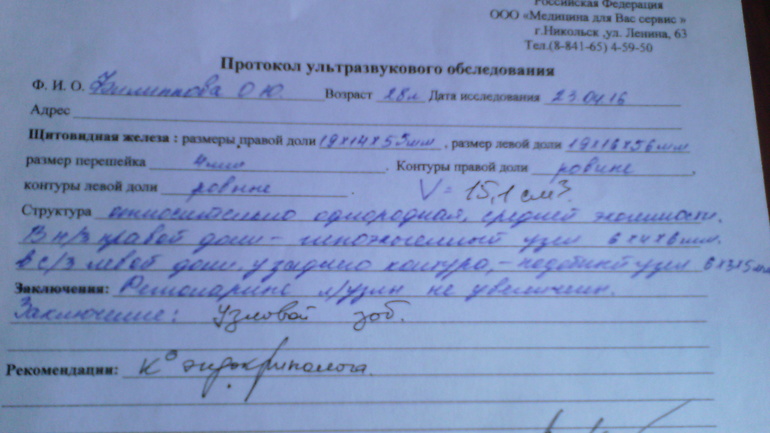 Российская Федерация
ООО «Медицина для Вас сервис »
г.Никольск ,ул. Ленина, 63
Тел.(8-841-65) 4-59-50
Протокол ультразвукового обследования
Ф. И. О. Филиппова О Ю. Возраст 28л Дата исследования 23 04 16
Адрес
Щитовидная железа : размеры правой доли 19х14х53мм , размер левой доли 19х16х56мм
размер перешейка 4мм . Контуры правой доли ровные ,
контуры левой доли ровные . V= 15,1 см³.
Структура относительно однородная, средней эхогенности.
В н/з правой доли - гипоэхогенный узел 6х4х6мм.
в с/з левой доли, у заднего контура, - подобный узел 6х3х5мм
Заключения: Регионарные л/узлы не увеличены.
Заключение: Узловой зоб.
Рекомендации: К° эндокринолога.